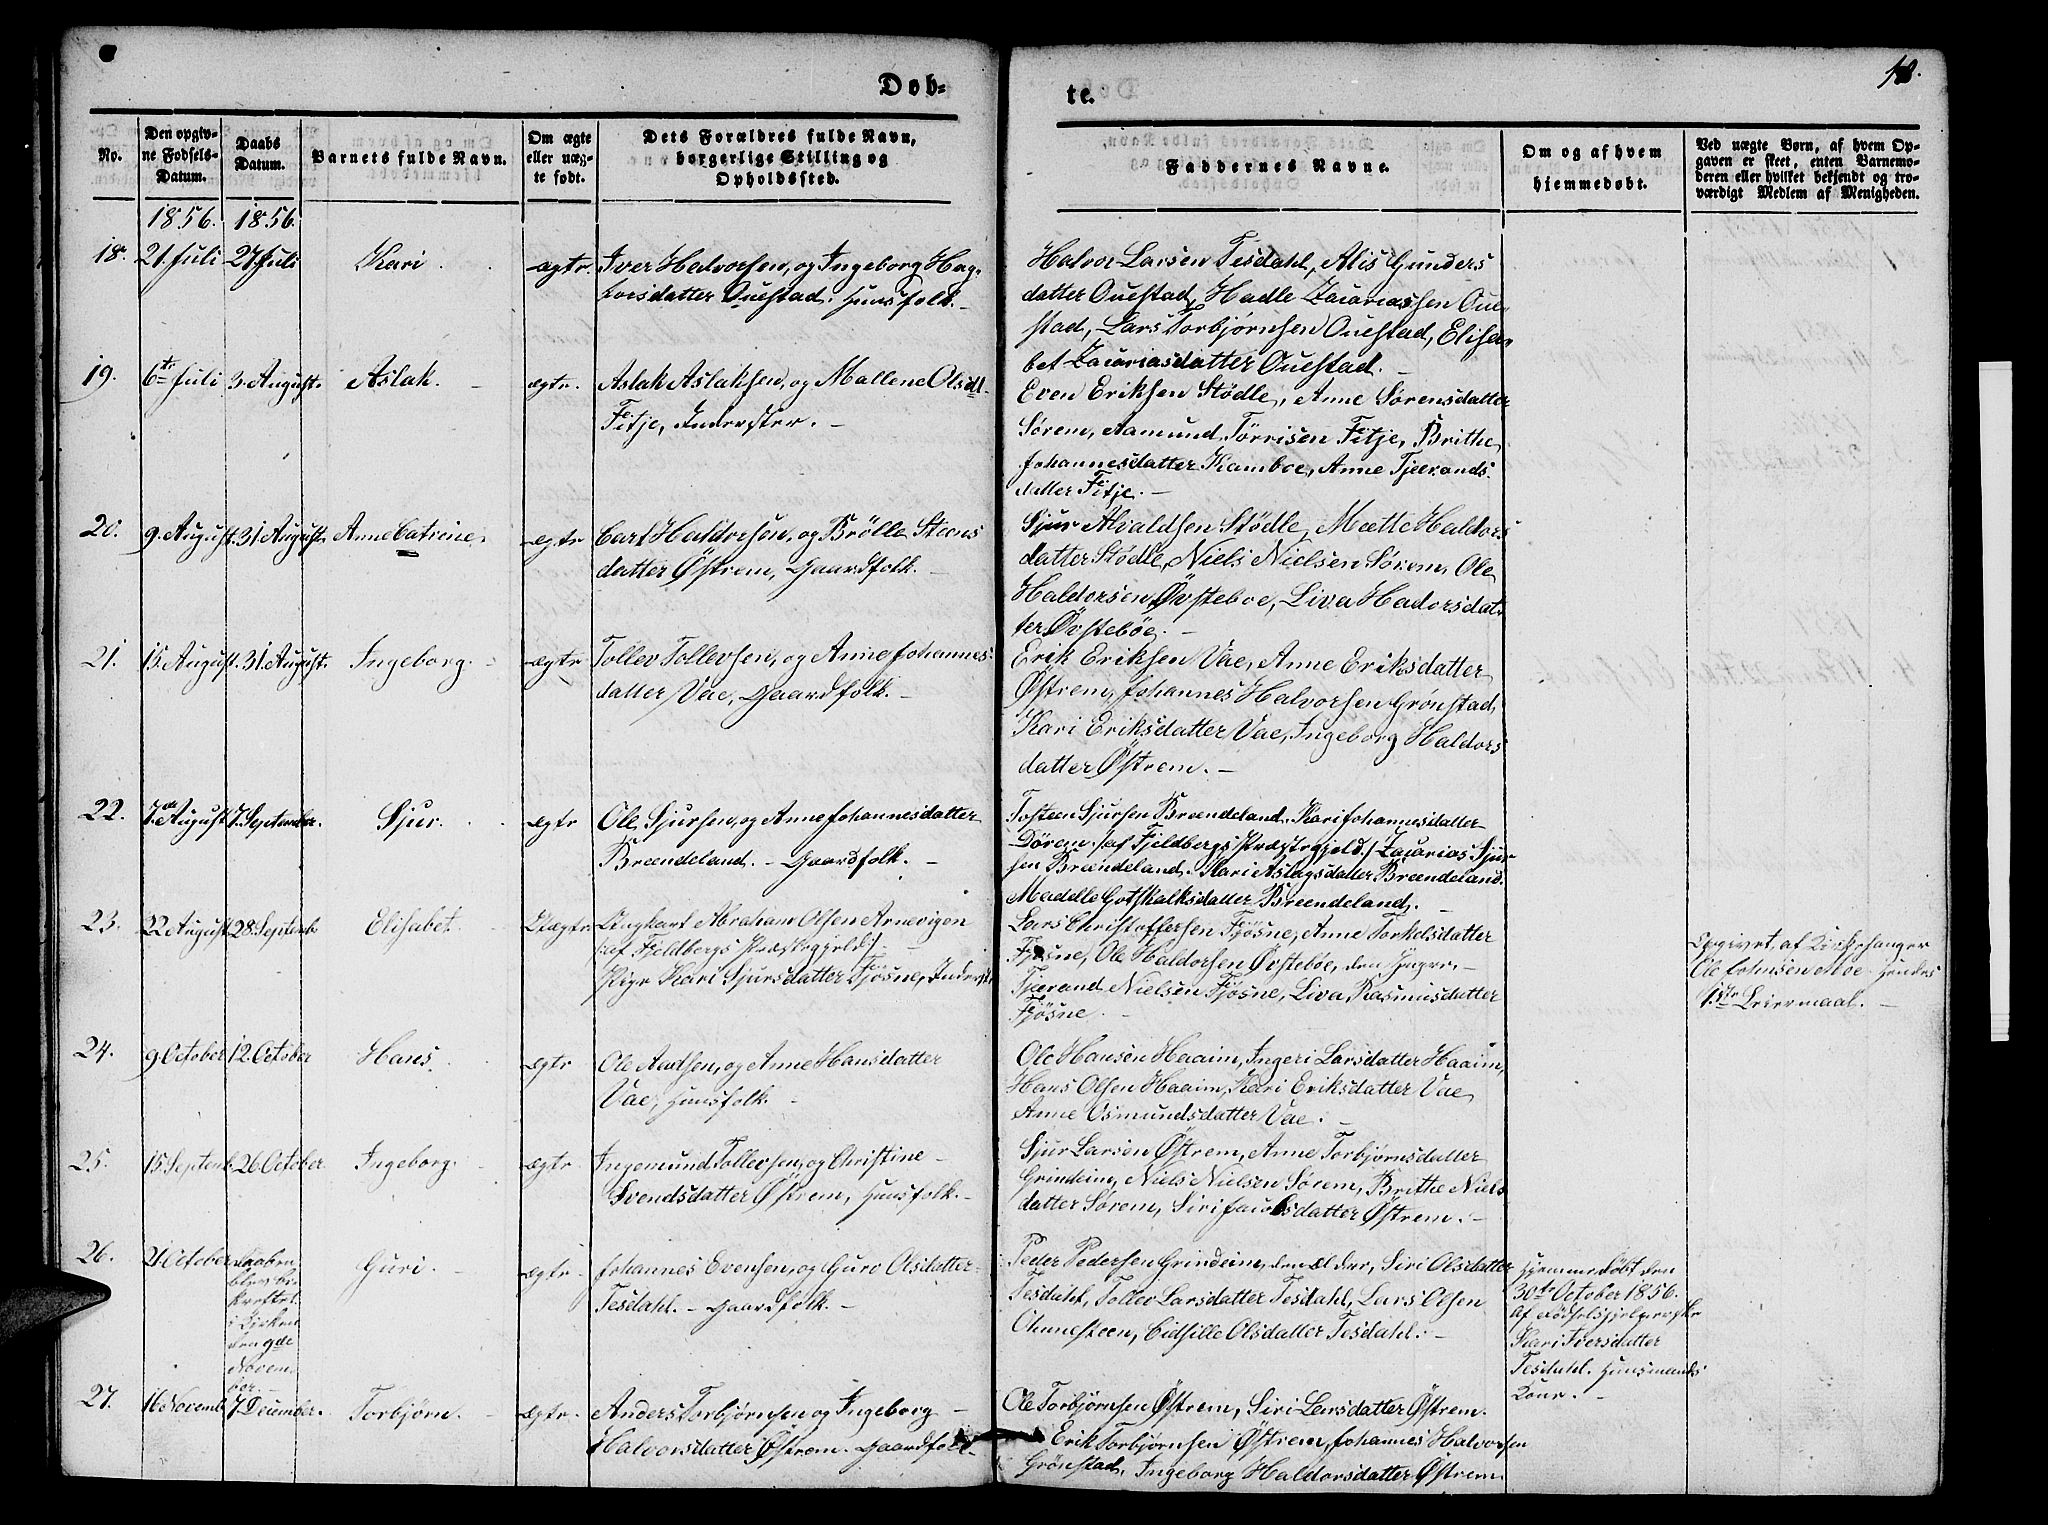 Døb-
te.
18.
No.
Den opgiv-
ne Fødsels-
Datum.
Daabs
Datum.
Barnets fulde Navn.
Om ægte
eller uæg-
te født.
Dets Forældres fulde Navn,
borgerlige Stilling og
Opholdssted.
Faddernes Navne.
Om og af hvem
hjemmedøbt.
Ved uægte Børn, af hvem Op-
gaven er skeet, enten Barnemo-
deren eller hvilket bekjendt og tro-
værdigt Medlem af Menigheden.
1856. 1856.
18. 21. Juli 27. Juli Kari. ægte.
Iver Halvorsen, og Ingeborg Hag-
borsdatter Ouestad. Huusfolk.
Halvor Larsen Tesdahl, Alis Gunders
datter Ouestad, Hadle Zacariassen Oue-
stad, Lars Torbjørnsen Ouestad, Elisa-
bet Zacariasdatter Ouestad.
19. 6te Juli 3. August. Aslak. ægte.
Aslak Aslaksen, og Mallene Olsdt.
Fitje, Inderster.
Even Eriksen Stødle, Anne Sørensdatter
Sørem, Aamund Tørrisen Fitje, Brithe
Johannesdatter Kamboe, Anne Tjerands-
datter Fitje.
20. 9. August. 31. August. Anne Catrine. ægte
Carl Haldorsen, og Brölle Steens
datter Østrem, Gaardfolk.
Sjur Alvaldsen Stødle, Mætte Haldors
datter Stødle, Niels Nielsen Sørem, Ole
Haldorsen Øvsteboe, Liva Hadorsdat-
ter Øvstebøe.
21. 15. August. 31. August. Ingeborg. ægte
Tollev Tollevsen, og Anne Johannes-
datter Vae, Gaardfolk.
Erik Eriksen Vae, Anne Eriksdatter
Østrem, Johannes Halvorsen Grønstad,
Kari Eriksdatter Vae, Ingeborg Haldors
datter Østrem.
22. 7de August 7. September. Sjur. ægte
Ole Sjursen, og Anne Johannesdatter
Brendeland. Gaardfolk.
Tosteen Sjursen Brendeland. Kari Johannesdatter
Dörem /af Fjeldbergs Præstegjeld./ Zacarias Sjur-
sen Brendeland. Kari Aslagsdatter Brendeland.
Madelle Gotskalksdatter Brendeland.
23. 22 August 28. Septemb. Elisabet. Uægte.
Ungkarl Abraham Olsen Arnevigen
/:af Fjeldbergs Præstegjeld/.
Pige Kari Sjursdatter Fjøsne, Inderst.
Lars Christoffersen Fjøsne, Anne Torkelsdatter
Fjøsne, Ole Haldorsen Øvstebøe, den Yngre,
Tjerand Nielsen Fjøsne, Liva Rasmusdatter
Fjøsne.
Opgivet af Kirkesanger
Ole Johnsen Moe. Hendes
1ste Leiermaal.
24. 9. October 12. October Hans. ægte
Ole Amdsen, og Anne Hansdatter
Vae, Huusfolk.
Ole Hansen Haaim, Ingeri Larsdatter Haaim,
Hans Olsen Haaim, Kari Eriksdatter Vae,
Anne Osmundsdatter Vae.
25. 15. Septemb. 26. October Ingeborg. ægte.
Ingemund Tollevsen, og Christine
Svendsdatter Østrem, Huusfolk.
Sjur Larsen Østrem, Anne Torbjørnsdatter
Grindeim, Niels Nielsen Sørem, Brithe Niels
datter Sørem, Siri Jacobsdatter Østrem.
26. 21 October Daaben
blev be-
kræftet
i Kirken
den 9de
Novem-
ber.
Guri. ægte.
Johannes Evensen, og Guro Olsdatter
Tesdahl. Gaardfolk.
Peder Pedersen Grindeim, den Eldre, Siri Olsdatter
Tesdahl, Tollev Larsdatter Tesdahl, Lars Olsen
Ohnesteen, Cidsille Olsdatter Tesdahl.
Hjemmedøbt den
30te October 1856.
af Fødselshjelperske
Kari Iversdatter
Tesdahl. Huusmands
Kone.
27. 16 Novemb. 7 December. Torbjørn. ægte.
Anders Torbjørnsen og Ingeborg
Halvorsdatter Østrem. Gaardfolk.
Ole Torbjørnsen Østrem, Siri Larsdatter Østrem.
Erik Torbjørnsen Østrem, Johannes Halvorsen
Grønstad, Ingeborg Haldorsdatter Østrem